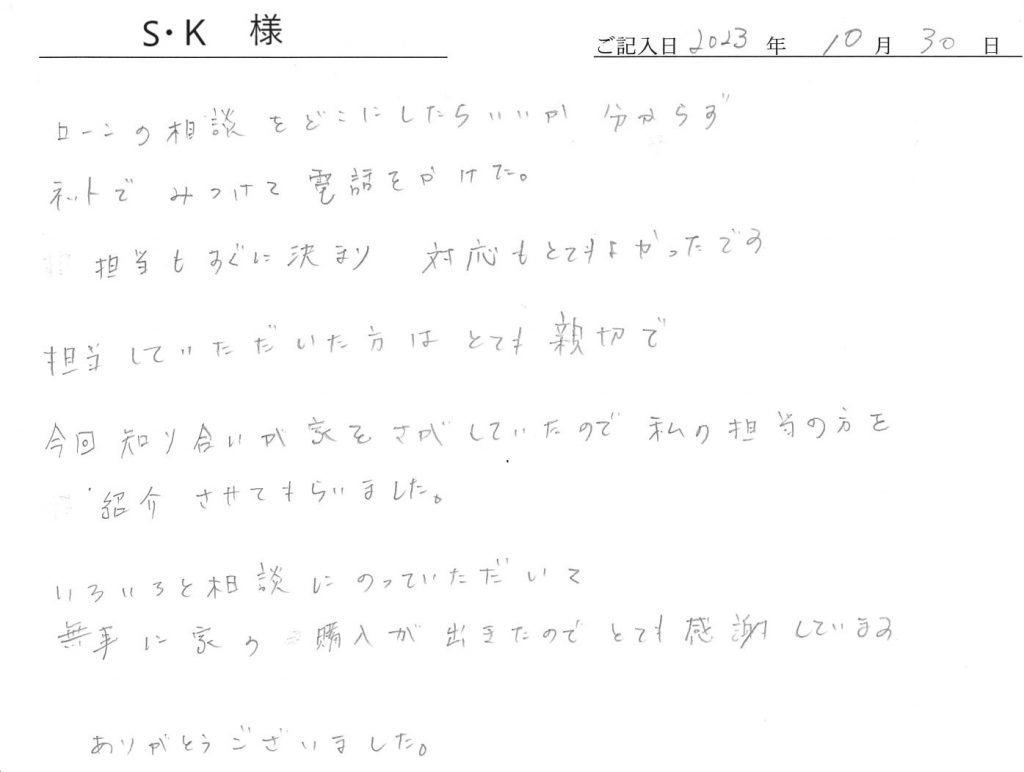 S・K 様
ご記入日 2023 年 10 月 30 日
ローンの相談をどこにしたらいいか 分からず
ネットで みつけて 電話をかけた。
担当もすぐに決まり 対応もとてもよかったです
担当していただいた方は とても 親切で
今回 知り合いが 家をさがしていたので 私の担当の方を
紹介 させてもらいました。
いろいろと相談にのっていただいて
無事に家の 購入が 出きたので とても 感謝しています
ありがとうございました。